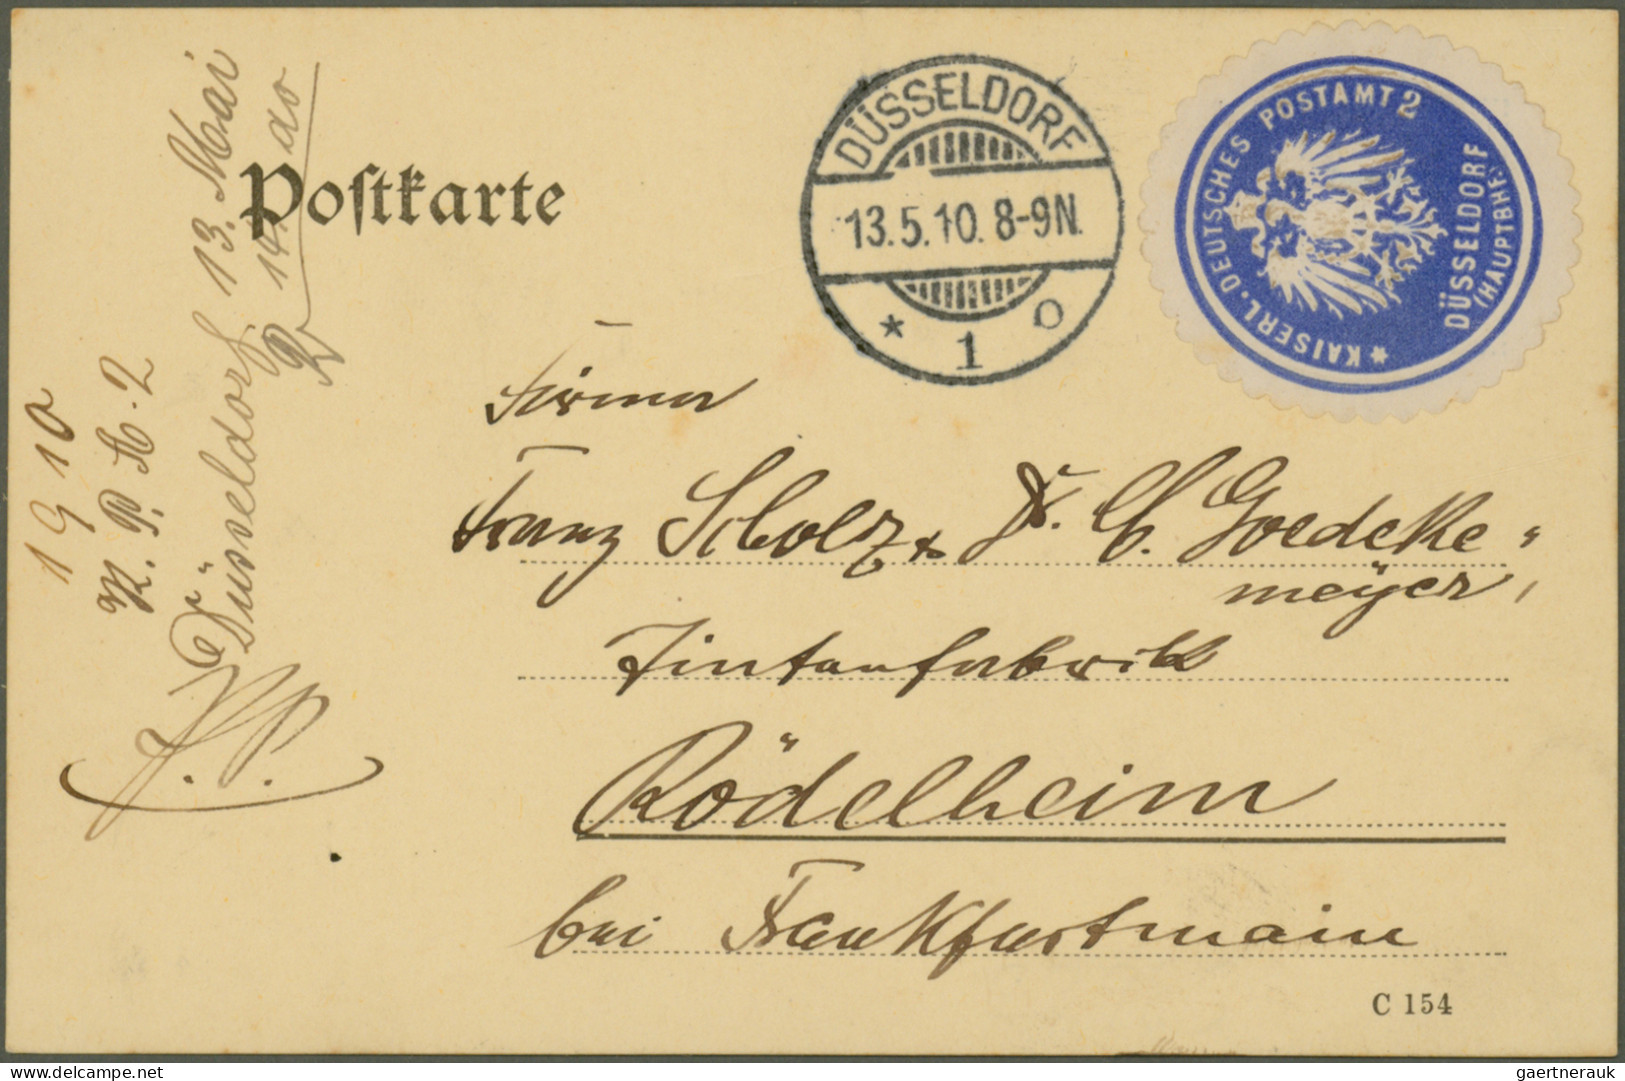 Postkarte
DÜSSELDORF
13.5.10. 8-9N.
* 1 o
* KAISERL. DEUTSCHES POSTAMT 2
DÜSSELDORF
(HAUPTBHF.)
Firma
Franz Scholz & Dr. C. Goedeke-
meyer,
Tintenfabrik
Rödelheim
bei Frankfurtmain
C 154
1910
K. P. A. 2
Düsseldorf 13. Mai
delcampe.net
gaertnerauk